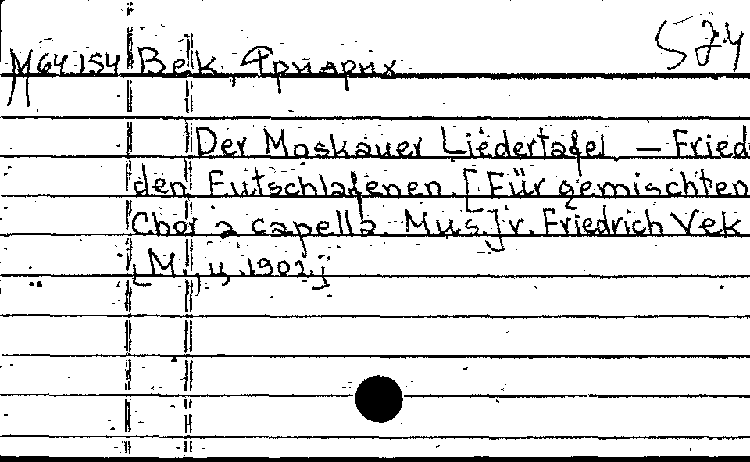 574
М64.154 Век, Фридрих
Der Moskauer Liedertafel. — Fried
den Eutschlafenen. [Für gemischten
Chor a capella. Mus.] v. Friedrich Vek
[М., ц. 1902.]